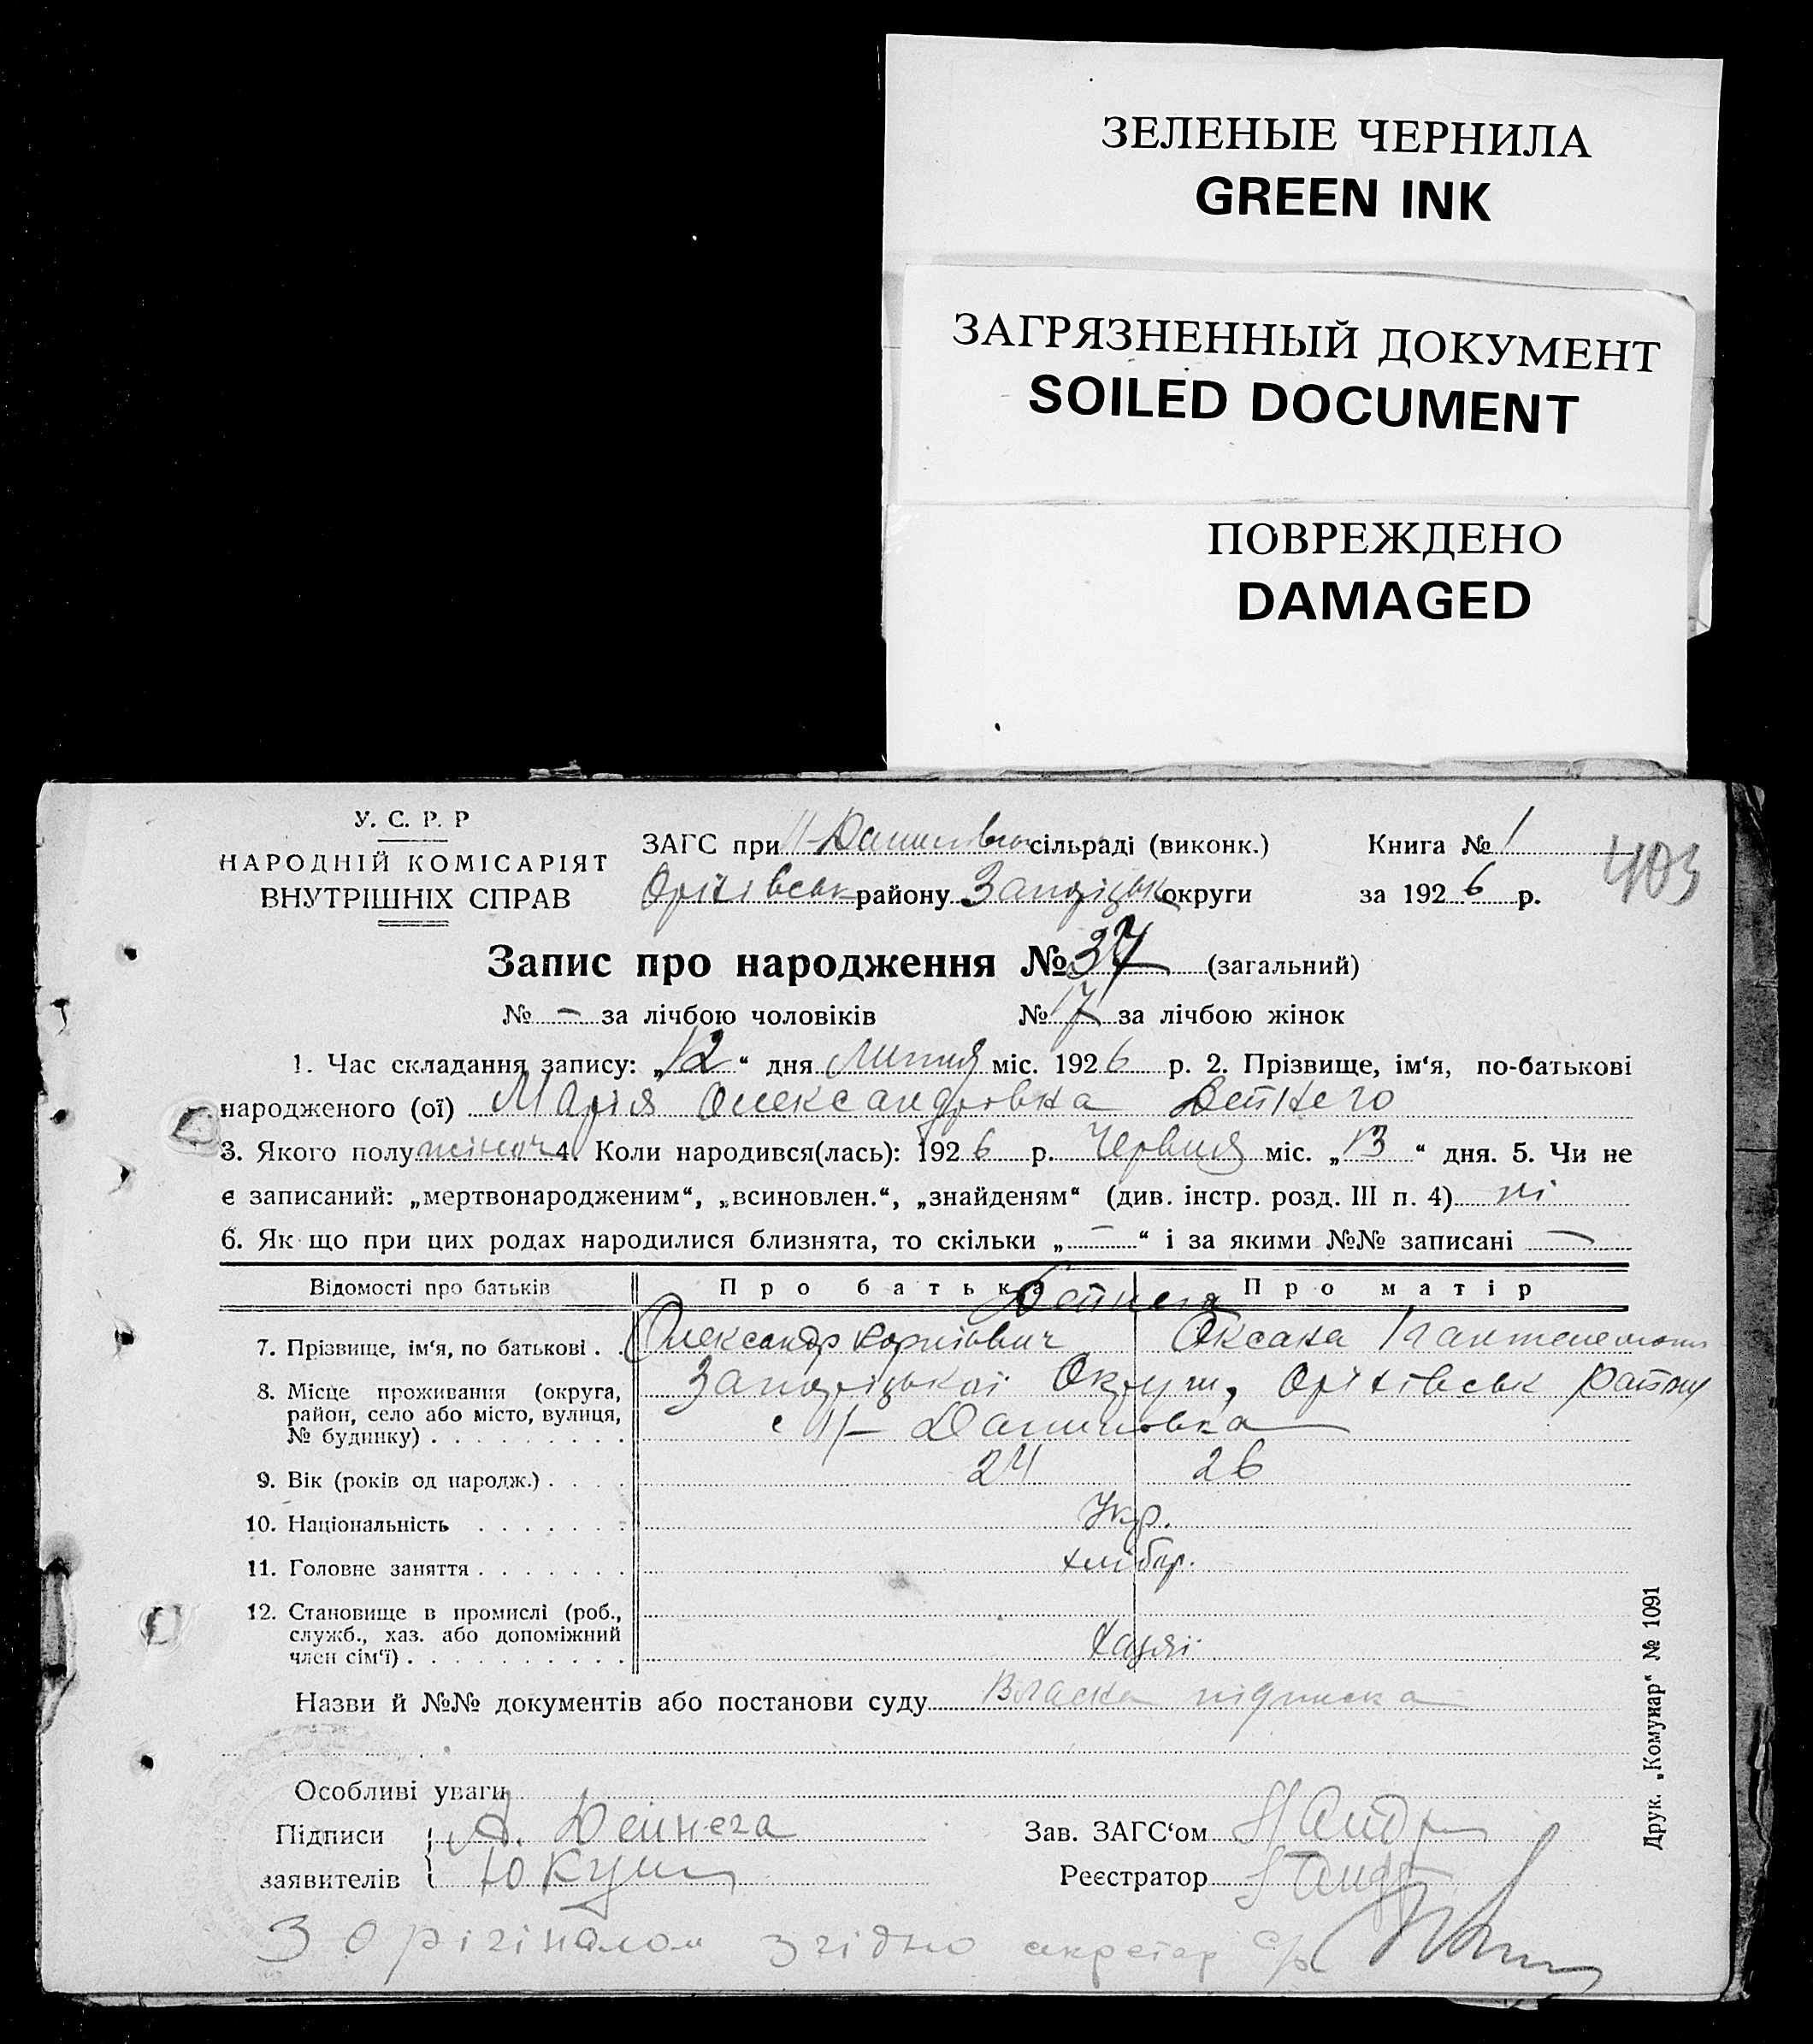 ЗЕЛЕНЫЕ ЧЕРНИЛА
GREEN INK
ЗАГРЯЗНЕННЫЙ ДОКУМЕНТ
SOILED DOCUMENT
ПОВРЕЖДЕНО
DAMAGED
У. С. Р. Р
НАРОДНІЙ КОМІСАРІЯТ
ВНУТРІШНІХ СПРАВ
ЗАГС при сільраді (виконк.) Книга № 1
Оріхівськ району Запоріцьк округи за 1926 р.
403
Запис про народження № 37 (загальний)
№ – за лічбою чоловіків № 17 за лічбою жінок
1. Час складання запису: „12“ дня Липня міс. 1926 р. 2. Прізвище, ім‘я, по-батькові
народженого (ої) Марія Олександровна
3. Якого полу жіноч 4. Коли народився(лась): 1926 р. Червня міс. „13“ дня. 5. Чи не
є записаний: „мертвонародженим“, „всиновлен.“, „знайденям“ (див. інстр. розд. III п. 4) ні
6. Як що при цих родах народилися близнята, то скільки „–“ і за якими №№ записані –
Відомості про батьків Про батька Про матір
7. Прізвище, ім‘я, по батькові . . Олександр Корнієвич Оксана
8. Місце проживання (округа, Запоріцької Округи, Оріхівськ району
район, село або місто, вулиця,
№ будинку) . . . . . . . . . с Н–Данилівка
9. Вік (років од народж.) . . . . 24 26
10. Національність . . . . . . . Укр.
11. Головне заняття . . . . . . . хлібор.
12. Становище в промислі (роб.,
служб., хаз. або допоміжний
член сім‘ї) . . . . . . . . . .
Назви й №№ документів або постанови суду Власна підписка
Особливі уваги
Підписи А. Дейнега Зав. ЗАГС‘ом
заявителів Реєстратор
З орігіналом згідно секретар с/р
Друк. „Комунар“ № 1091